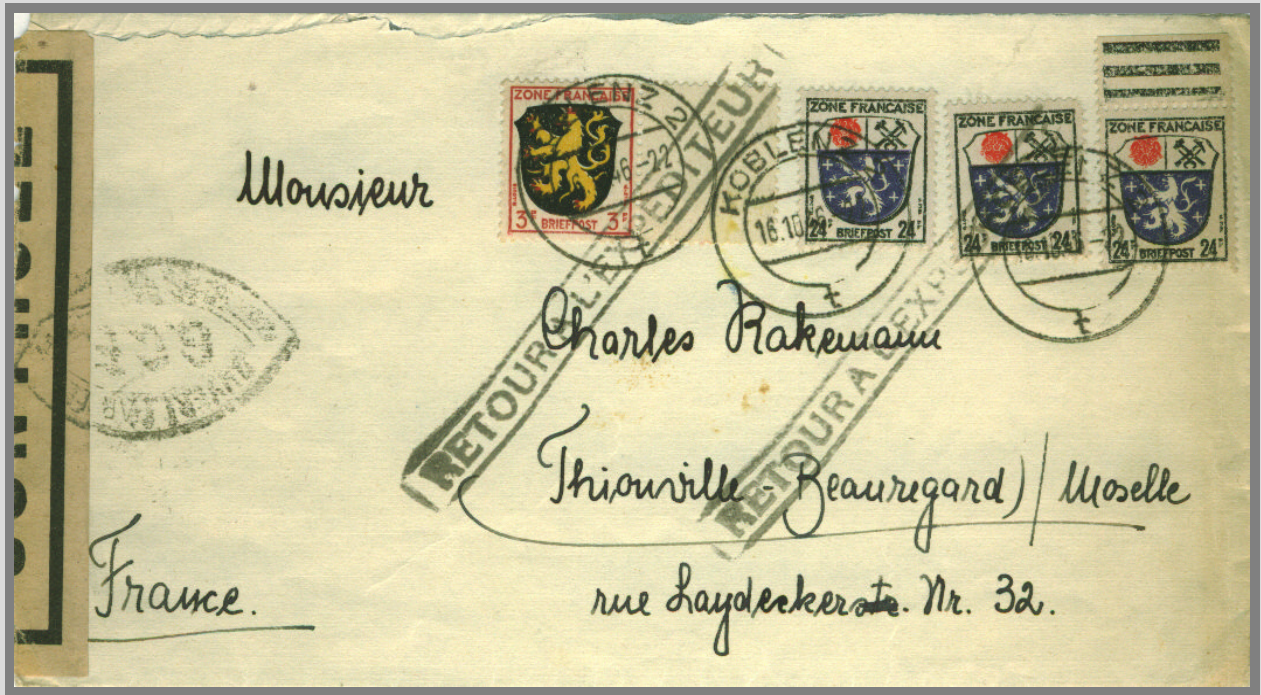 ZONE FRANÇAISE
3F BRIEFPOST 3F
ZONE FRANÇAISE
24F BRIEFPOST 24F
ZONE FRANÇAISE
24F BRIEFPOST 24F
ZONE FRANÇAISE
24F BRIEFPOST 24F
KOBLENZ
16.10.
RETOUR A L'EXPEDITEUR
RETOUR A L'EXP
Monsieur
Charles Rakemann
Thionville-Beauregard)/Moselle
rue Laydecker. Nr. 32.
France.